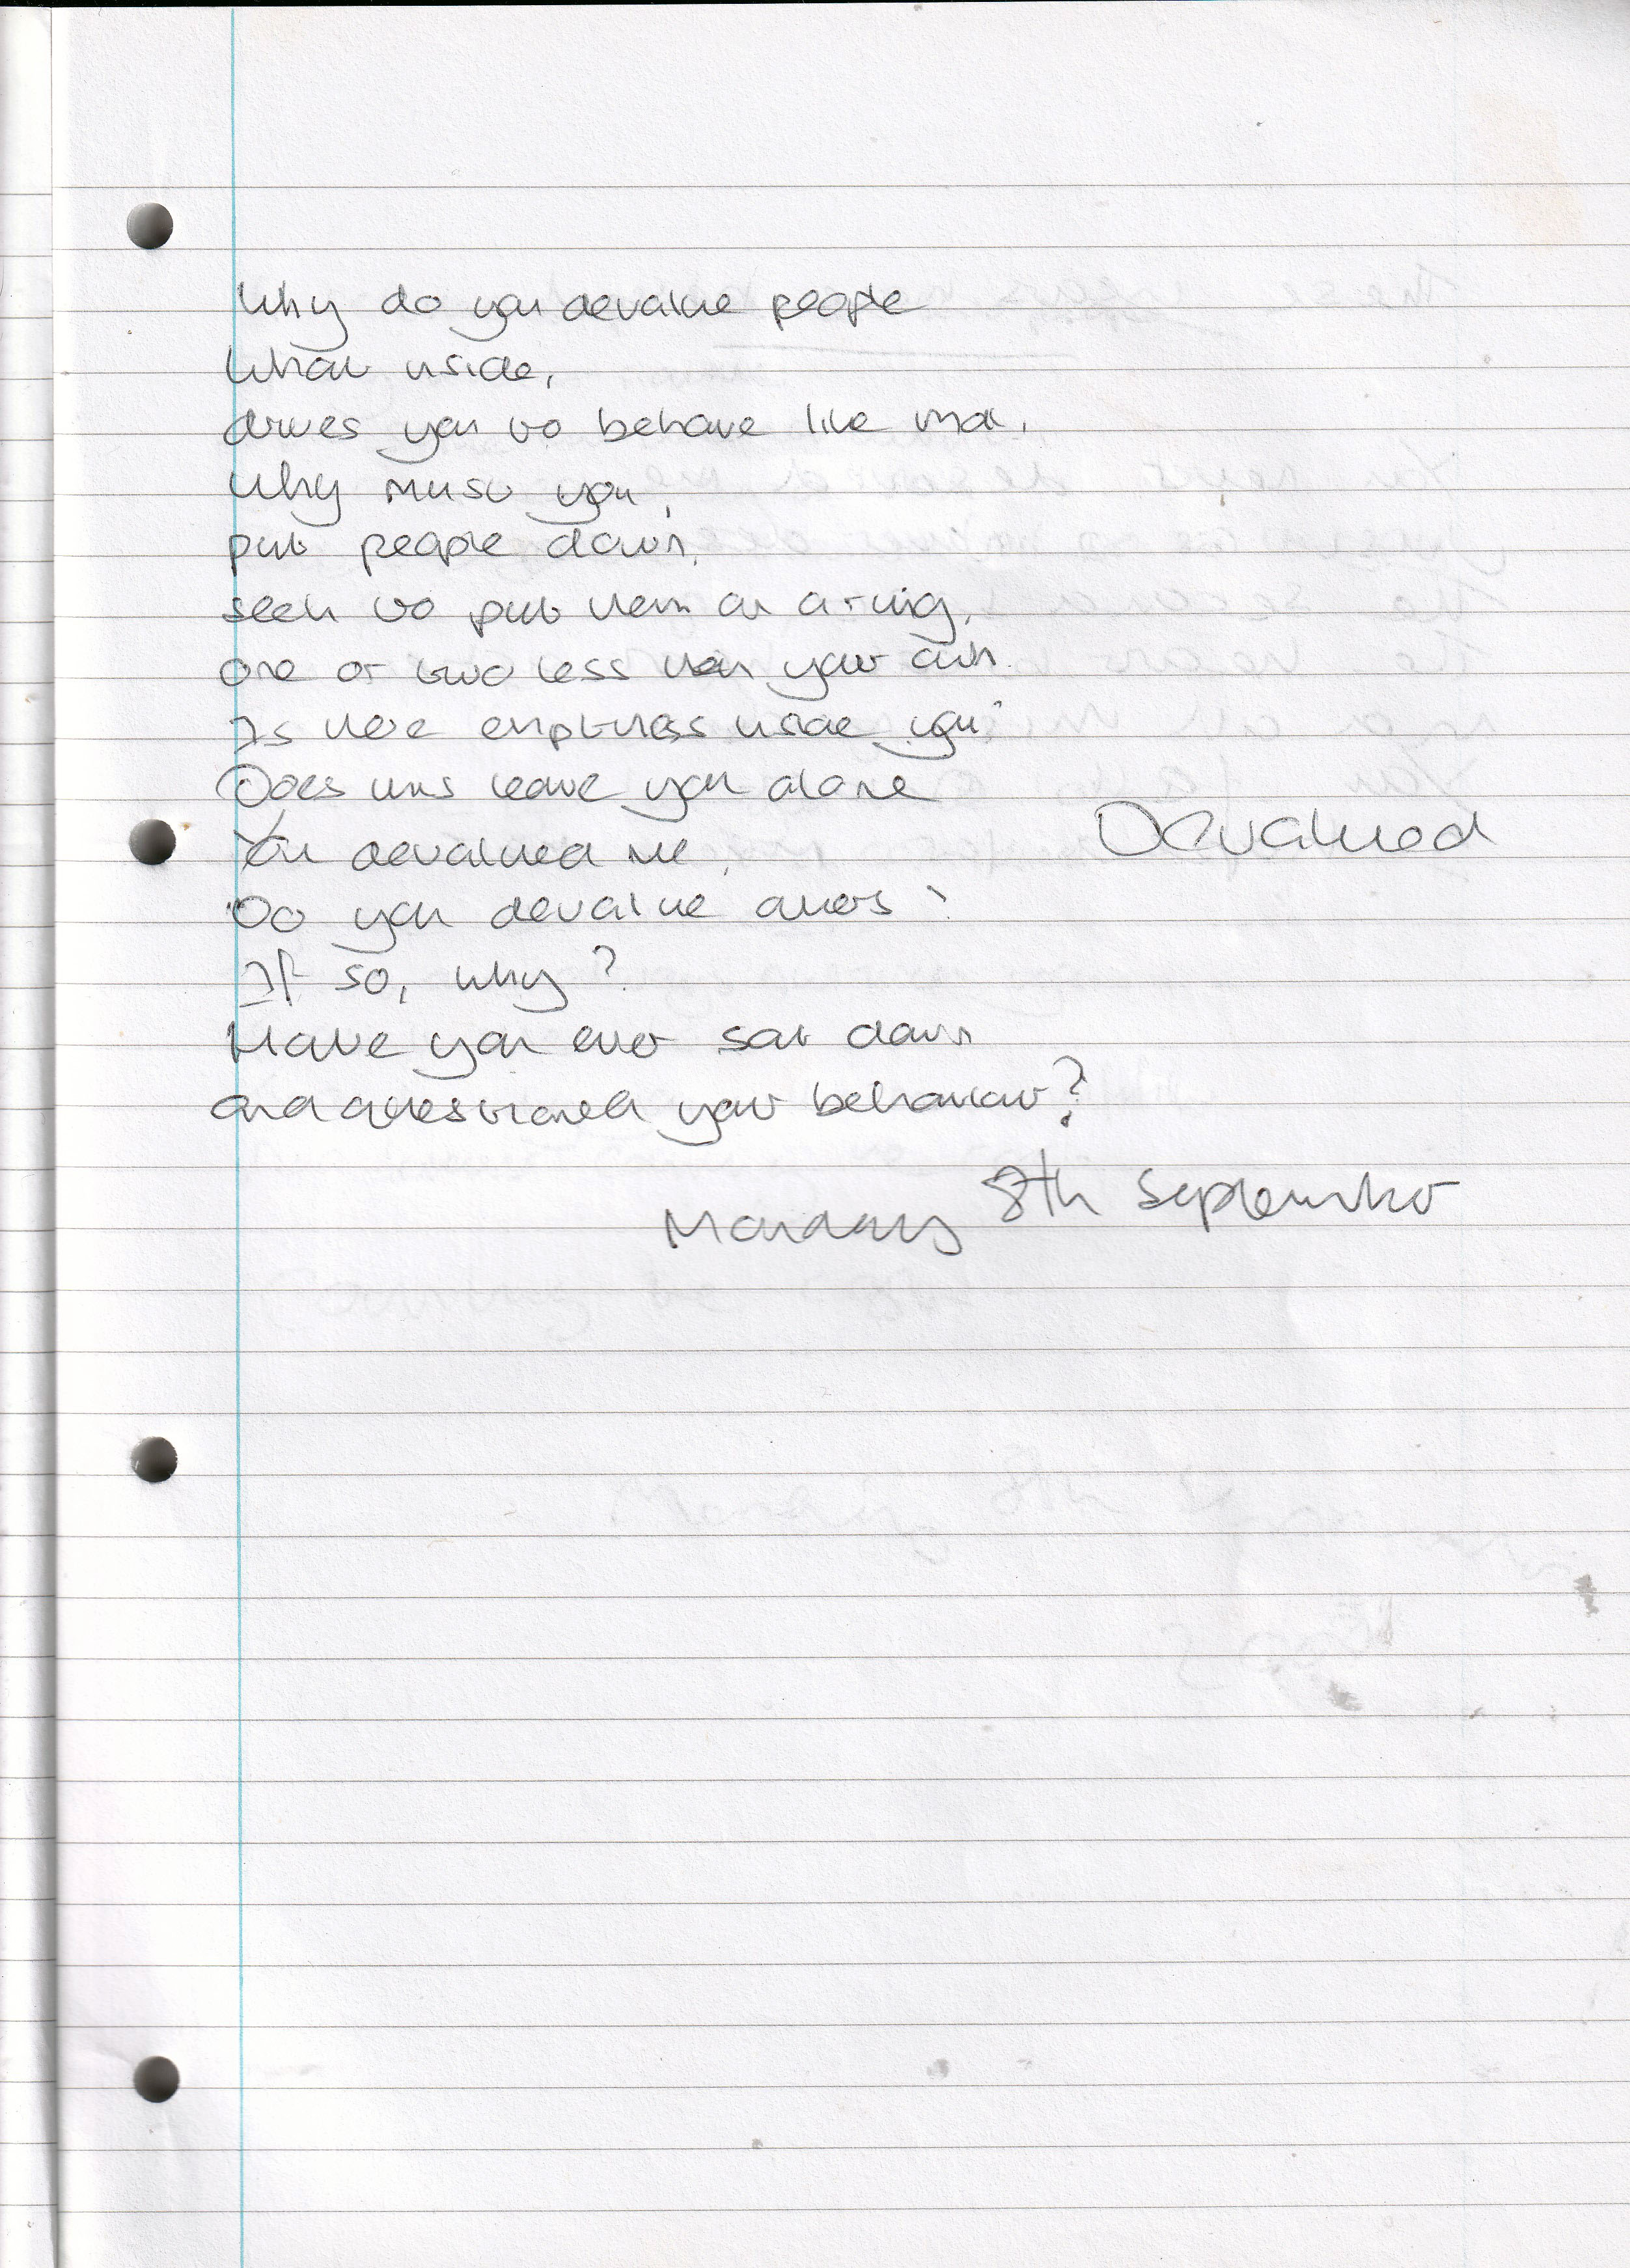 Why do you devalue people
What inside,
drives you to behave like that.
Why must you,
put people down,
seek to put them on a rung,
one or two less than your own.
Is there emptiness inside you?
Does this leave you alone
You devalued me,
Devalued
Do you devalue others?
If so, why?
Have you ever sat down
and questioned your behaviour?
Monday 8th September